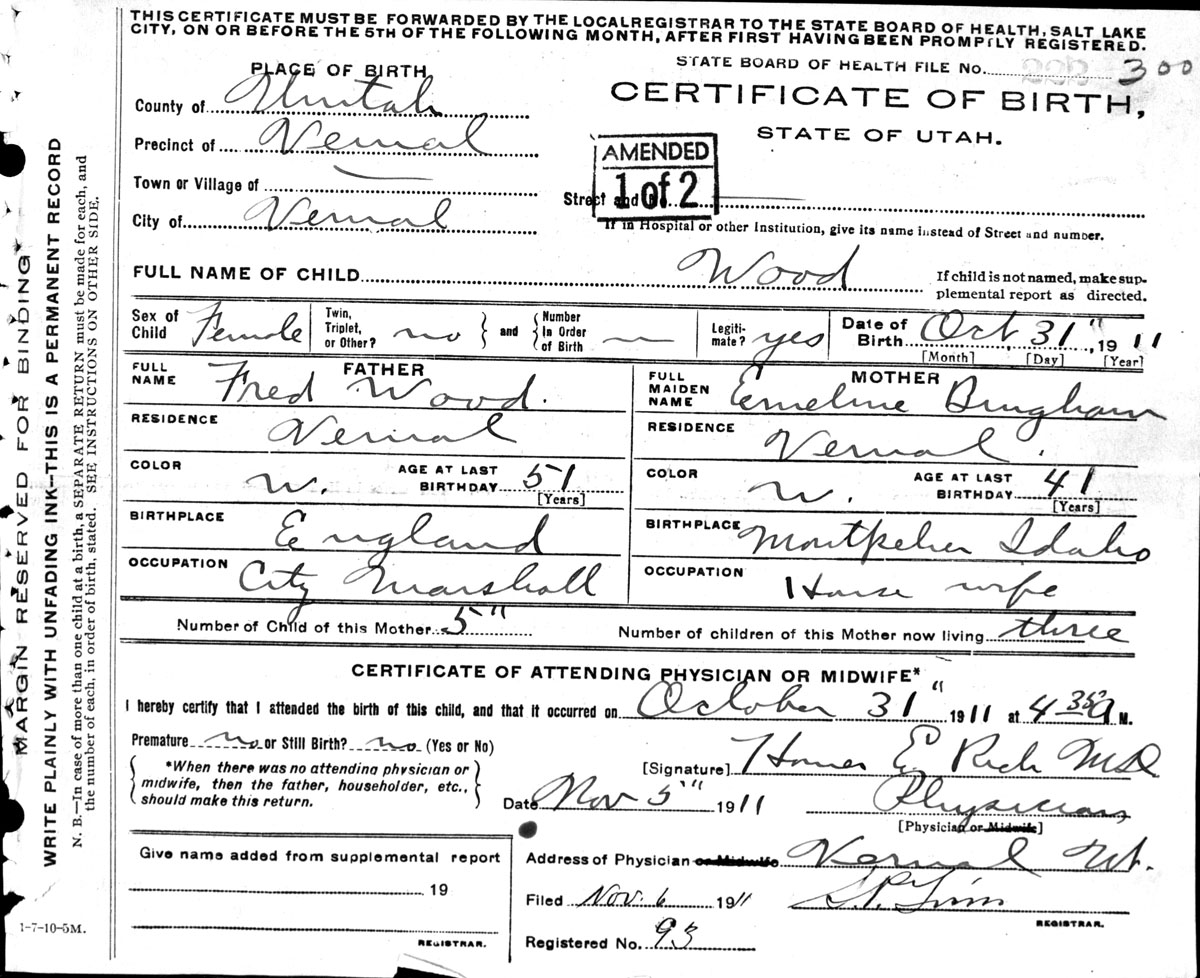 THIS CERTIFICATE MUST BE FORWARDED BY THE LOCAL REGISTRAR TO THE STATE BOARD OF HEALTH, SALT LAKE
CITY, ON OR BEFORE THE 5TH OF THE FOLLOWING MONTH, AFTER FIRST HAVING BEEN PROMPTLY REGISTERED.
STATE BOARD OF HEALTH FILE No. 300
PLACE OF BIRTH
CERTIFICATE OF BIRTH,
STATE OF UTAH.
County of Uintah
Precinct of Vernal
AMENDED
1 of 2
Town or Village of
Street and
City of Vernal
If in Hospital or other Institution, give its name instead of Street and number.
FULL NAME OF CHILD Wood
If child is not named, make sup-
plemental report as directed.
Sex of Child Female
Twin, Triplet, or Other? no
and
Number In Order of Birth
Legiti-mate? yes
Date of Birth Oct 31", 1911
[Month] [Day] [Year]
FATHER
FULL NAME Fred Wood.
RESIDENCE Vernal
COLOR W. AGE AT LAST BIRTHDAY 51
[Years]
BIRTHPLACE England
OCCUPATION City Marshall
MOTHER
FULL MAIDEN NAME Emeline Bingham
RESIDENCE Vernal.
COLOR W. AGE AT LAST BIRTHDAY 41
[Years]
BIRTHPLACE Montpelier Idaho
OCCUPATION House wife
Number of Child of this Mother 5"
Number of children of this Mother now living three
CERTIFICATE OF ATTENDING PHYSICIAN OR MIDWIFE*
I hereby certify that I attended the birth of this child, and that it occurred on October 31" 1911 at 4 35 a M.
Premature no or Still Birth? no (Yes or No)
*When there was no attending physician or
midwife, then the father, householder, etc.,
should make this return.
[Signature] Homer E Rich MD
Date Nov 5" 1911
Physician
[Physician or Midwife]
Address of Physician or Midwife Vernal Ut.
Give name added from supplemental report
19
REGISTRAR.
Filed Nov. 6 1911
REGISTRAR.
Registered No. 93
1-7-10-5M.
MARGIN RESERVED FOR BINDING
WRITE PLAINLY WITH UNFADING INK--THIS IS A PERMANENT RECORD
N. B.—In case of more than one child at a birth, a SEPARATE RETURN must be made for each, and
the number of each, in order of birth, stated. SEE INSTRUCTIONS ON OTHER SIDE.